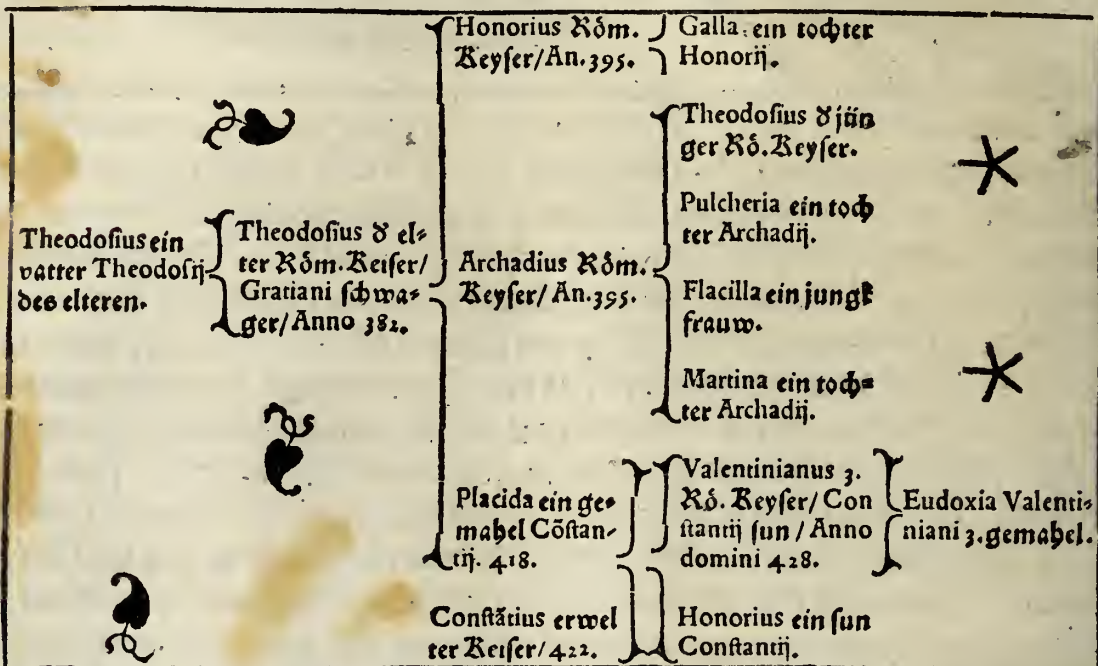 Theodosius ein
vatter Theodosij
des elteren.
Theodosius ð el⸗
ter Röm. Keiser/
Gratiani schwa⸗
ger/ Anno 382.
Honorius Röm.
Keyser/An. 395.
Galla ein tochter
Honorij.
Archadius Röm.
Keyser/ An. 395.
Theodosius ð jün
ger Rö. Keyser.
Pulcheria ein toch
ter Archadij.
Flacilla ein jungk
frauw.
Martina ein toch⸗
ter Archadij.
Placida ein ge⸗
mahel Cõstan⸗
tij. 418.
Constãtius erwel
ter Keiser/422.
Valentinianus 3.
Rö. Keyser/ Con
stantij sun / Anno
domini 428.
Honorius ein sun
Constantij.
Eudoxia Valenti⸗
niani 3. gemahel.